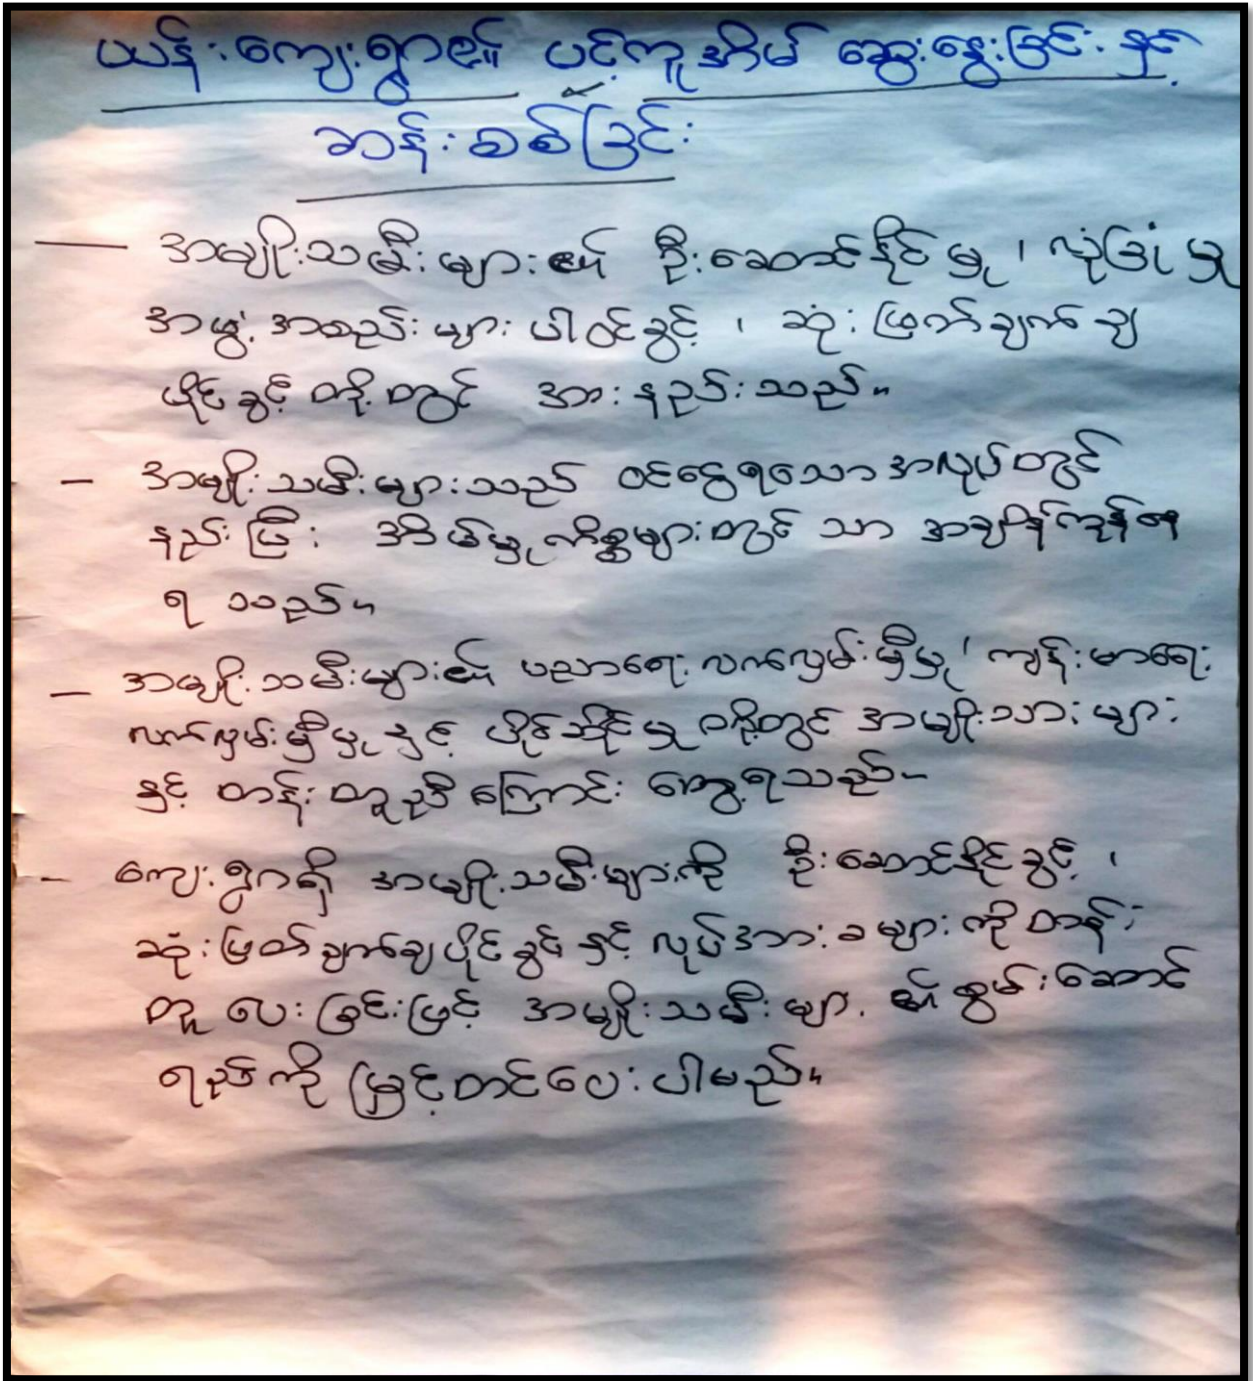 ယန်းကျေးရွာ၏ ပင့်ကူအိမ် ဆွေးနွေးခြင်း နှင့်
ဆန်းစစ်ခြင်း
— အမျိုးသမီးများ၏ ဦးဆောင်နိုင်မှု ၊ လုံခြုံမှု
အဖွဲ့အစည်းများ ပါဝင်ခွင့် ၊ ဆုံးဖြတ်ချက်ချ
ပိုင်ခွင့် တို့တွင် အားနည်းသည်။
- အမျိုးသမီးများသည် ဝင်ငွေရသောအလုပ်တွင်
နည်းပြီး အိမ်မှုကိစ္စများတွင် သာ အချိန်ကုန်နေ
ရ သည်။
- အမျိုးသမီးများ၏ ပညာရေးလက်လှမ်းမှီမှု ၊ ကျန်းမာရေး
လက်လှမ်းမှီမှု နှင့် ပိုင်ဆိုင်မှု တို့တွင် အမျိုးသားများ
နှင့် တန်းတူညီကြောင်း တွေ့ရသည်။
- ကျေးရွာရှိ အမျိုးသမီးများကို ဦးဆောင်နိုင်ခွင့် ၊
ဆုံးဖြတ်ချက်ချပိုင်ခွင့် နှင့် လုပ်အားခများ ကို တန်း
တူ ပေးခြင်းဖြင့် အမျိုးသမီးများ ၏ စွမ်းဆောင်
ရည်ကို မြှင့်တင်ပေးပါမည်။